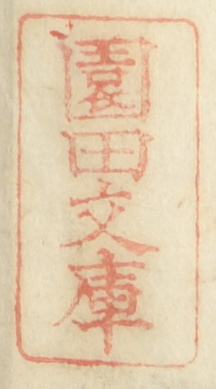 園田文庫